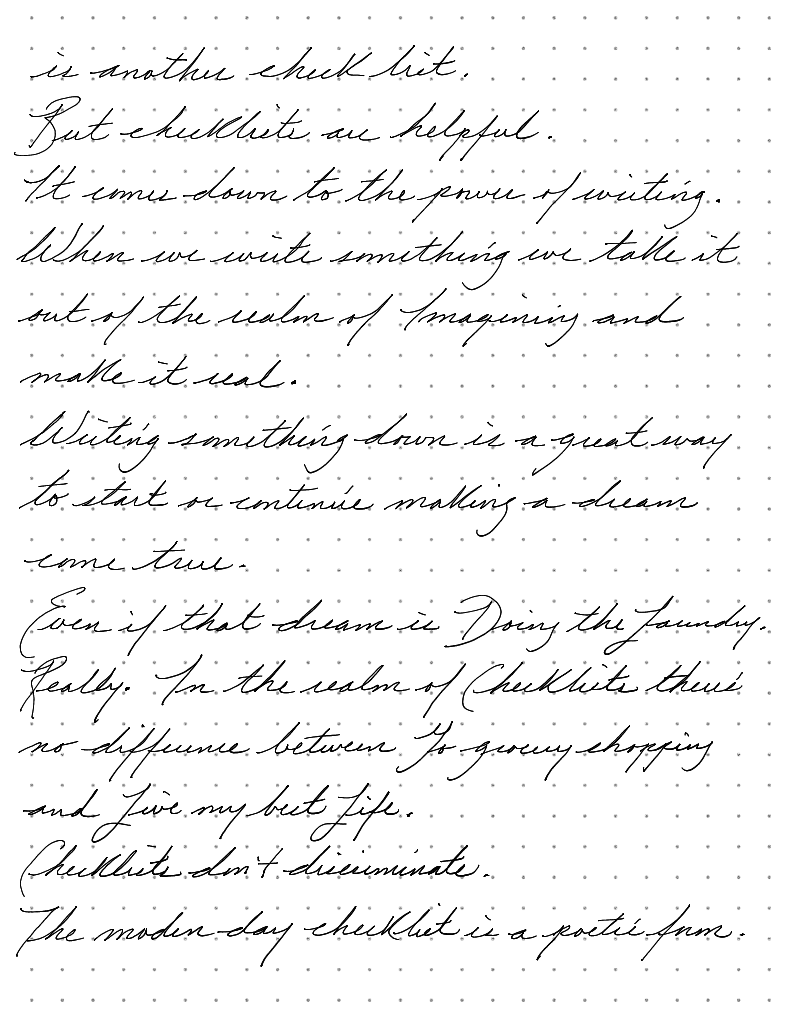 is another check list.
But checklists are helpful.
It comes down to the power of writing.
When we write something we take it
out of the realm of Imagining and
make it real.
Writing something down is a great way
to start or continue making a dream
come true.
Even if that dream is Doing the Laundry.
Really. In the realm of Checklists there's
no difference between Go grocery shopping
and Live my best Life.
Checklists don't discriminate.
The modern day checklist is a poetic form.